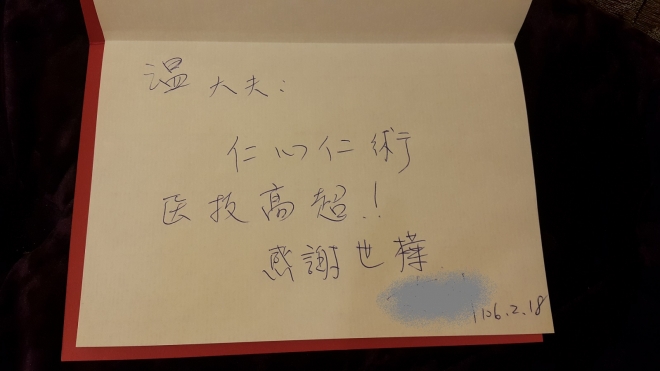 温大夫：
仁心仁術
医技高超!!
感謝世樺
106.2.18